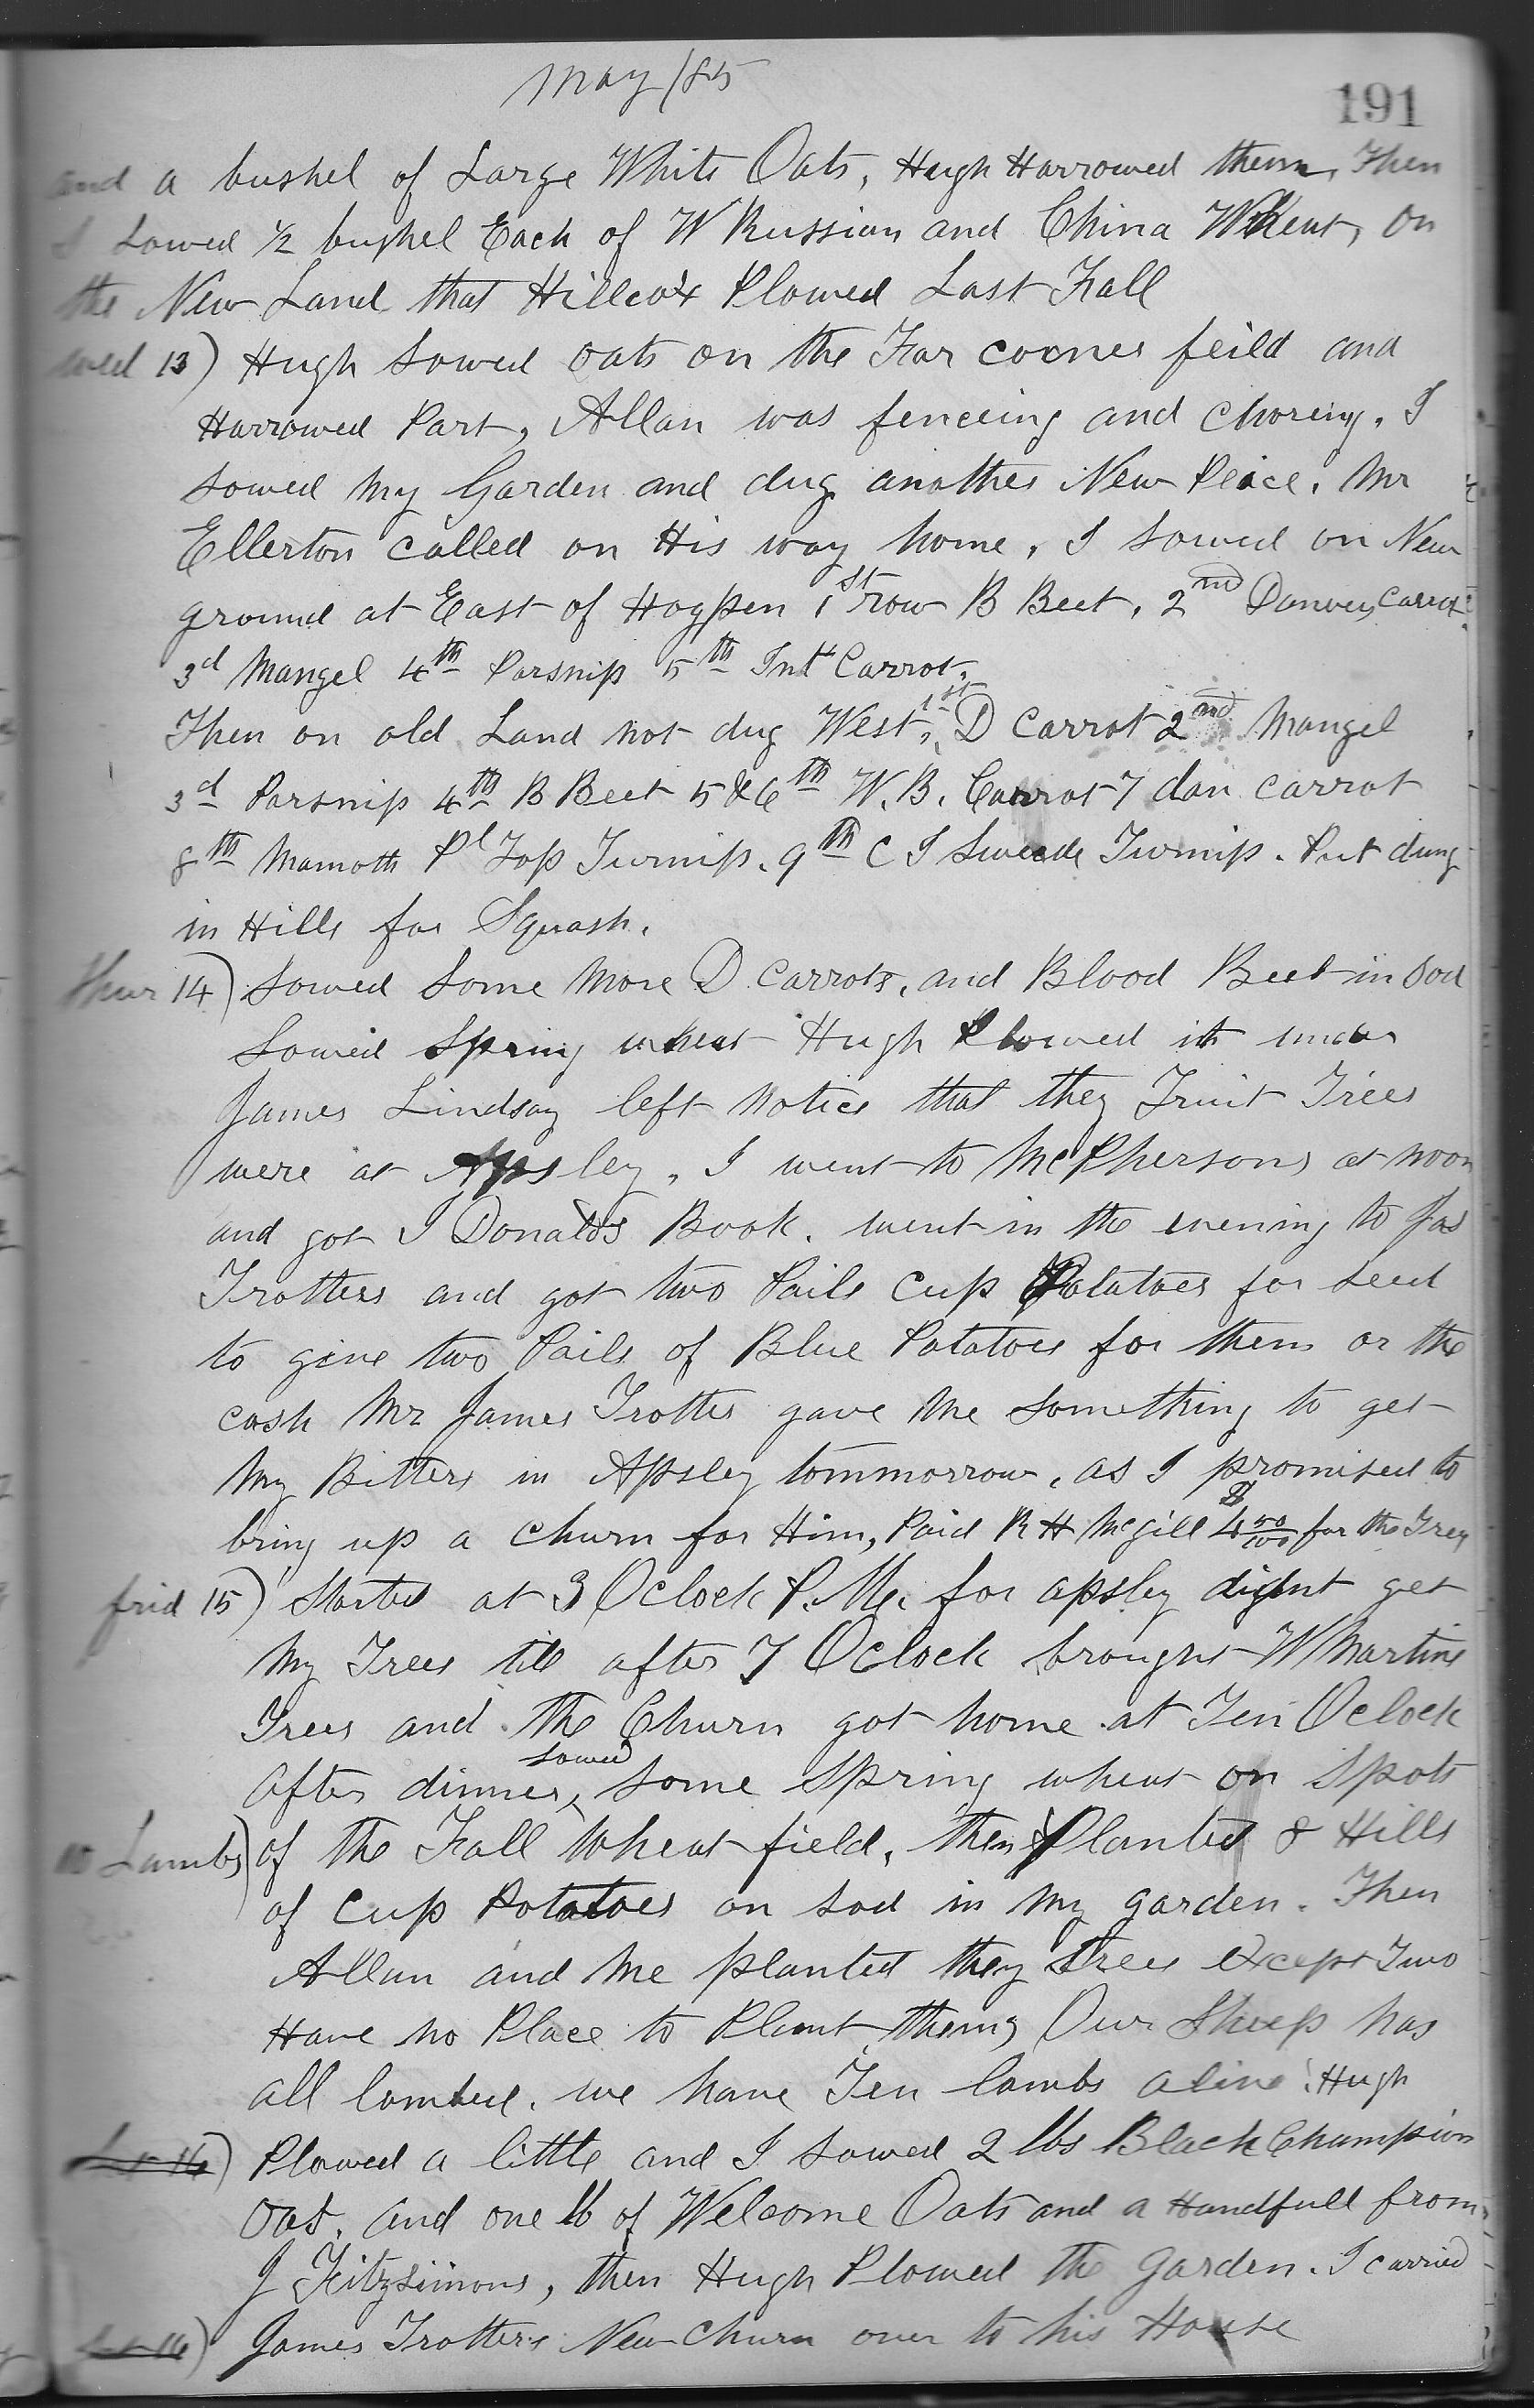 May /85
191
and a bushel of Large White Oats, Hugh Harrowed them, Then
I Sowed ½ bushel Each of W Russian and China Wheat, On
the New Land that Hillcox Plowed Last Fall
wed 13) Hugh Sowed Oats on the Far corner feild and
Harrowed Part, Allan was fenceing and Choreing. I
Sowed My Garden and dug another New Peice. Mr
Ellerton called on His way home. I Sowed on New
ground at East of Hogpen 1st row B Beet, 2nd Danvers Carrot
3d Mangel 4th Parsnip 5th Int Carrot.
Then on old Land not dug West, 1st D Carrot 2nd Mangel
3d Parsnip 4th B Beet 5 & 6th W. B. Carrot 7 dan carrot
8th Mamoth Pl Top Turnip. 9th C I Sweede Turnip. Put dung
in Hills for Squash.
Thur 14) Sowed Some More D Carrots, and Blood Beet in Sod
Sowed Spring wheat Hugh Plowed it under
James Lindsay left Notice that they Fruit Trees
were at Apsley. I went to McPhersons at noon
and got I Donalds Book. went in the evening to Jas
Trotters and got two Pails Cup Potatoes for Seed
to give two Pails of Blue Potatoes for them or the
cash Mr James Trotter gave Me Something to get
My Bitters in Apsley tommorrow, as I promised to
bring up a Churn for Him, Paid R H McGill $4 50/100 for the Trees
frid 15) Started at 3 Oclock P.M. for apsley dignt get
My Trees till after 7 Oclock brought W Martins
Trees and the Churn got home at Ten Oclock
After dinner, sowed Some Spring wheat on Spots
10 Lambs) of the Fall Wheat field, then Planted 8 Hills
of Cup Potatoes on Sod in My garden. Then
Allan and Me planted they Trees except Two
Have no Place to Plant them, Our Sheep has
all lambed. we have Ten lambs alive. Hugh
Plowed a little and I Sowed 2 lbs Black Champion
Oat. and one lb of Welcome Oats and a Handfull from
J Fitzsimons, then Hugh Plowed the Garden. I carried
James Trotters New Churn over to his House